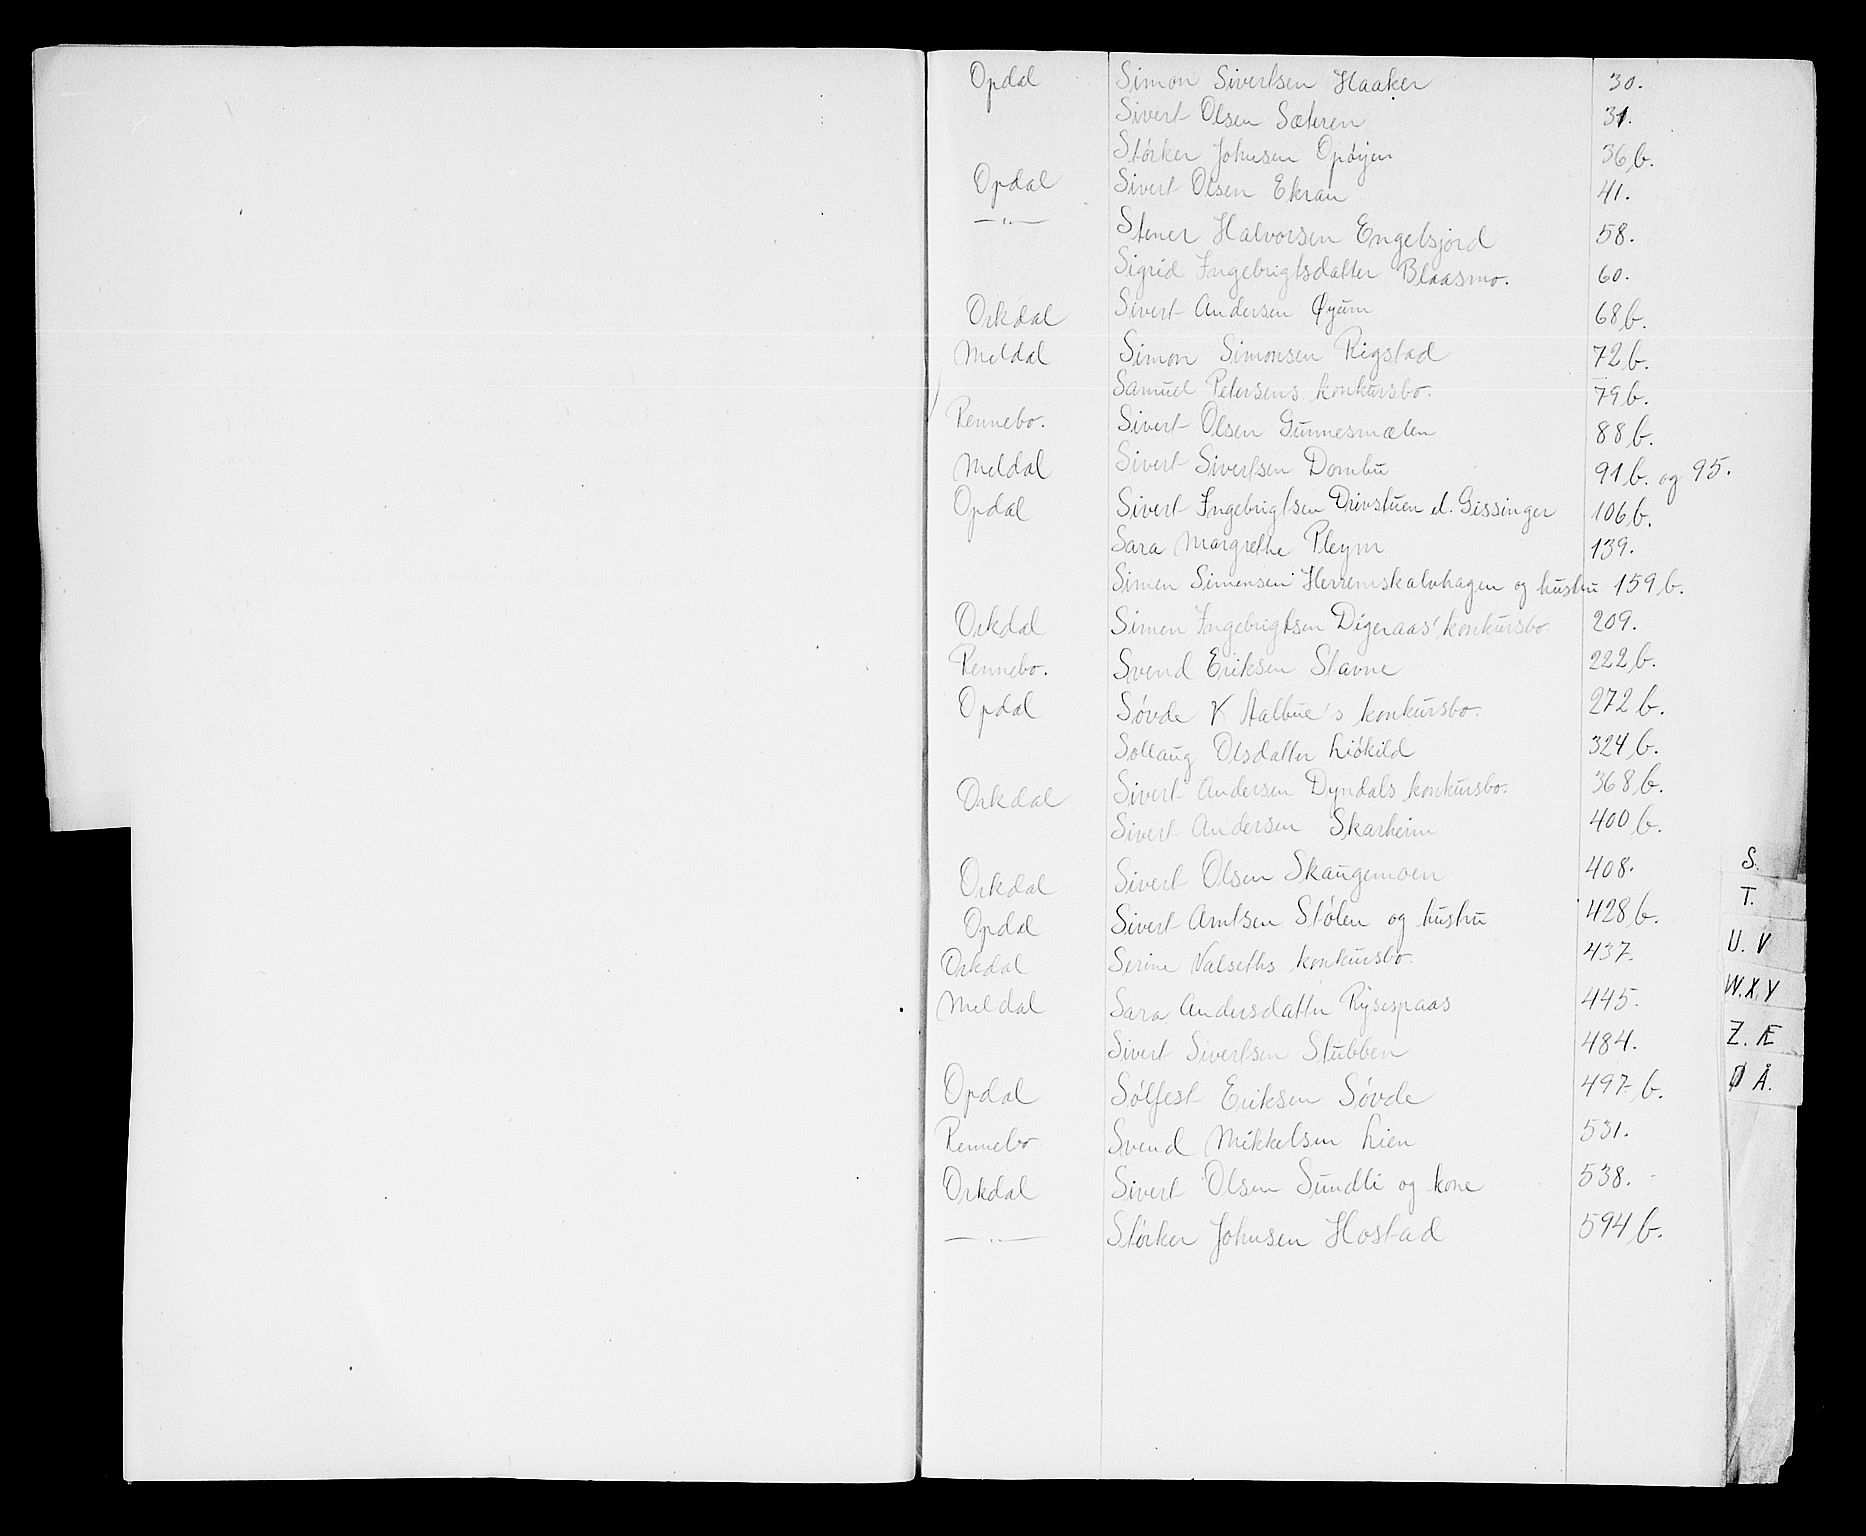 Opdal Simon Sivertsen Haaker 30.
Sivert Olsen Sæteren 31.
Størker Johnsen Opøijen 36 b.
Opdal Sivert Olsen Ekran 41.
—"— Stener Halvorsen Engelsjord 58.
Sigrid Ingebrigtsdatter Blaasmo. 60.
Orkdal Sivert Andersen Øyum 68 b.
Meldal Simon Simonsen Rigstad 72 b.
Samuel Petersens konkursbo. 79 b.
Rennebo. Sivert Olsen Gunnesmælen 88 b.
Meldal Sivert Sivertsen Dombu 91 b. og 95.
Opdal Sivert Ingebrigtsen Drivstuen d. Gissinger 106 b.
Sara Margrethe Pleym 139.
Simen Simensen Herremskalvhagen og hustru 159 b.
Orkdal Simen Ingebrigtsen Digeraas' konkursbo 209.
Rennebo. Svend Eriksen Stavne 222 b.
Opdal Søvde V Aalbue's konkursbo. 272 b.
Sollaug Olsdatter Liökild 324 b.
Orkdal Sivert Andersen Dyndals konkursbo. 368 b.
Sivert Andersen Skarheim 400 b.
Orkdal Sivert Olsen Skaugemoen 408.
Opdal Sivert Arntsen Stølen og hustru 428 b.
Orkdal Serine Valseths konkursbo. 437.
Meldal Sara Andersdatter Rysespaas 445.
Sivert Sivertsen Stubben 484.
Opdal Sølfest Eriksen Søvde 497 b.
Rennebo Svend Mikkelsen Lien 531.
Orkdal Sivert Olsen Sundli og kone 538.
—"— Størker Johnsen Hostad 594 b.
S.
T.
U. V
W. X. Y
Z. Æ
Ø Å.